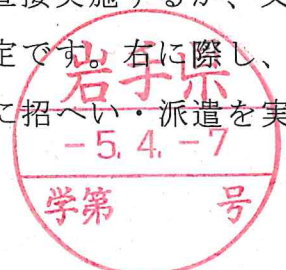 直接実施するが、又
定です。右に際し、
に招へい・派遣を実
岩手県
-5.4.-7
学第 号